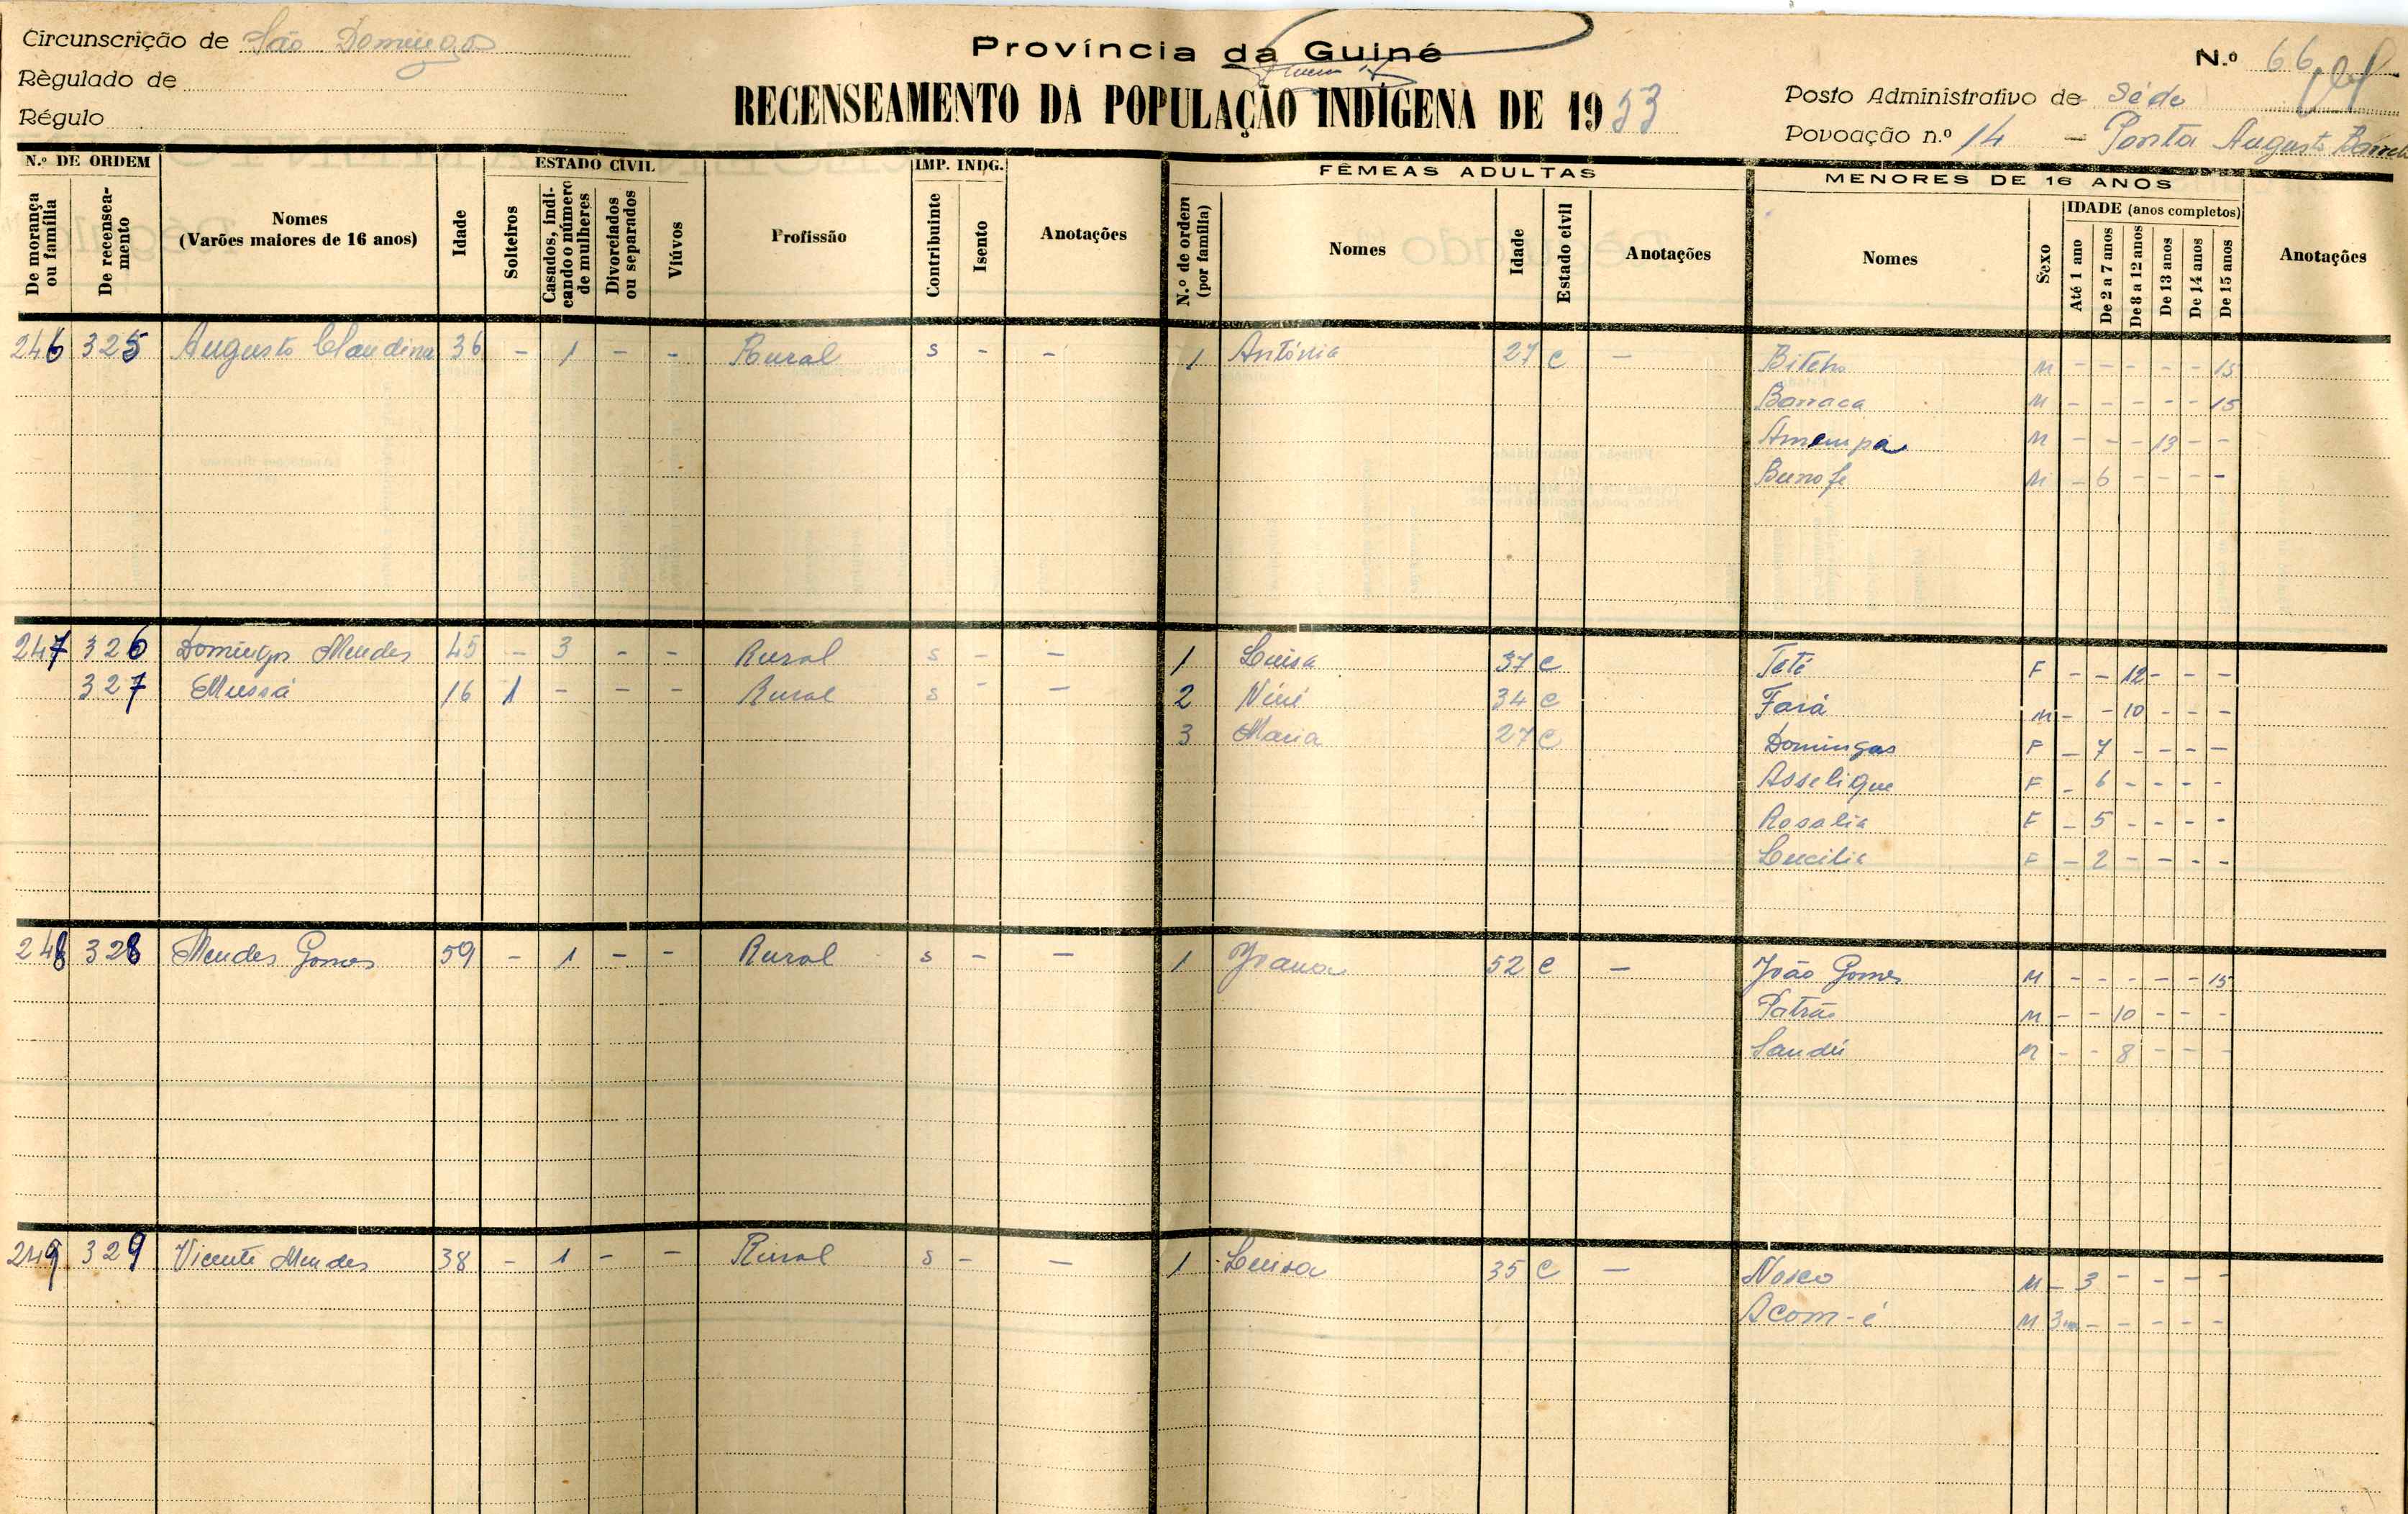 Circunscrição de São Domingos
Règulado de
Régulo
Província da Guiné
RECENSEAMENTO DA POPULAÇÃO INDÍGENA DE 1953
N.º 66
Posto Administrativo de Séde
Povoação n.º 14 - Ponta Augusto
N.º DE ORDEM
De morança ou família
De recenseamento
Nomes
(Varões maiores de 16 anos)
Idade
ESTADO CIVIL
Solteiros
Casados, indicando o número de mulheres
Divorciados ou separados
Viúvos
Profissão
IMP. INDG.
Contribuinte
Isento
Anotações
FÊMEAS ADULTAS
N.º de ordem (por família)
Nomes
Idade
Estado civil
Anotações
MENORES DE 16 ANOS
Nomes
Sexo
IDADE (anos completos)
Até 1 ano
De 2 a 7 anos
De 8 a 12 anos
De 13 anos
De 14 anos
De 15 anos
Anotações
246 325 Augusto Claudino 36 - 1 - - Rural s - - 1 Antónia 27 C - M - - - - - 15
Barraca M - - - - - 15
M - - - 13 - -
M - 6 - - - -
247 326 Domingos Mendes 45 - 3 - - Rural s - - 1 Luisa 37 C Teté F - - 12 - - -
327 Mussá 16 1 - - - Rural s - - 2 Nini 34 C Fará M - - 10 - - -
3 Maria 27 C Domingas F - 7 - - - -
Asselique F - 6 - - - -
Rosalia F - 5 - - - -
Lucilia F - 2 - - - -
248 328 Mendes Gomes 59 - 1 - - Rural s - - 1 Joana 52 C - João Gomes M - - - - - 15
M - - 10 - - -
Sandú M - - 8 - - -
249 329 Vicente Mendes 38 - 1 - - Rural s - - 1 Luisa 35 C - M - 3 - - - -
Acom-é M 3m - - - - -